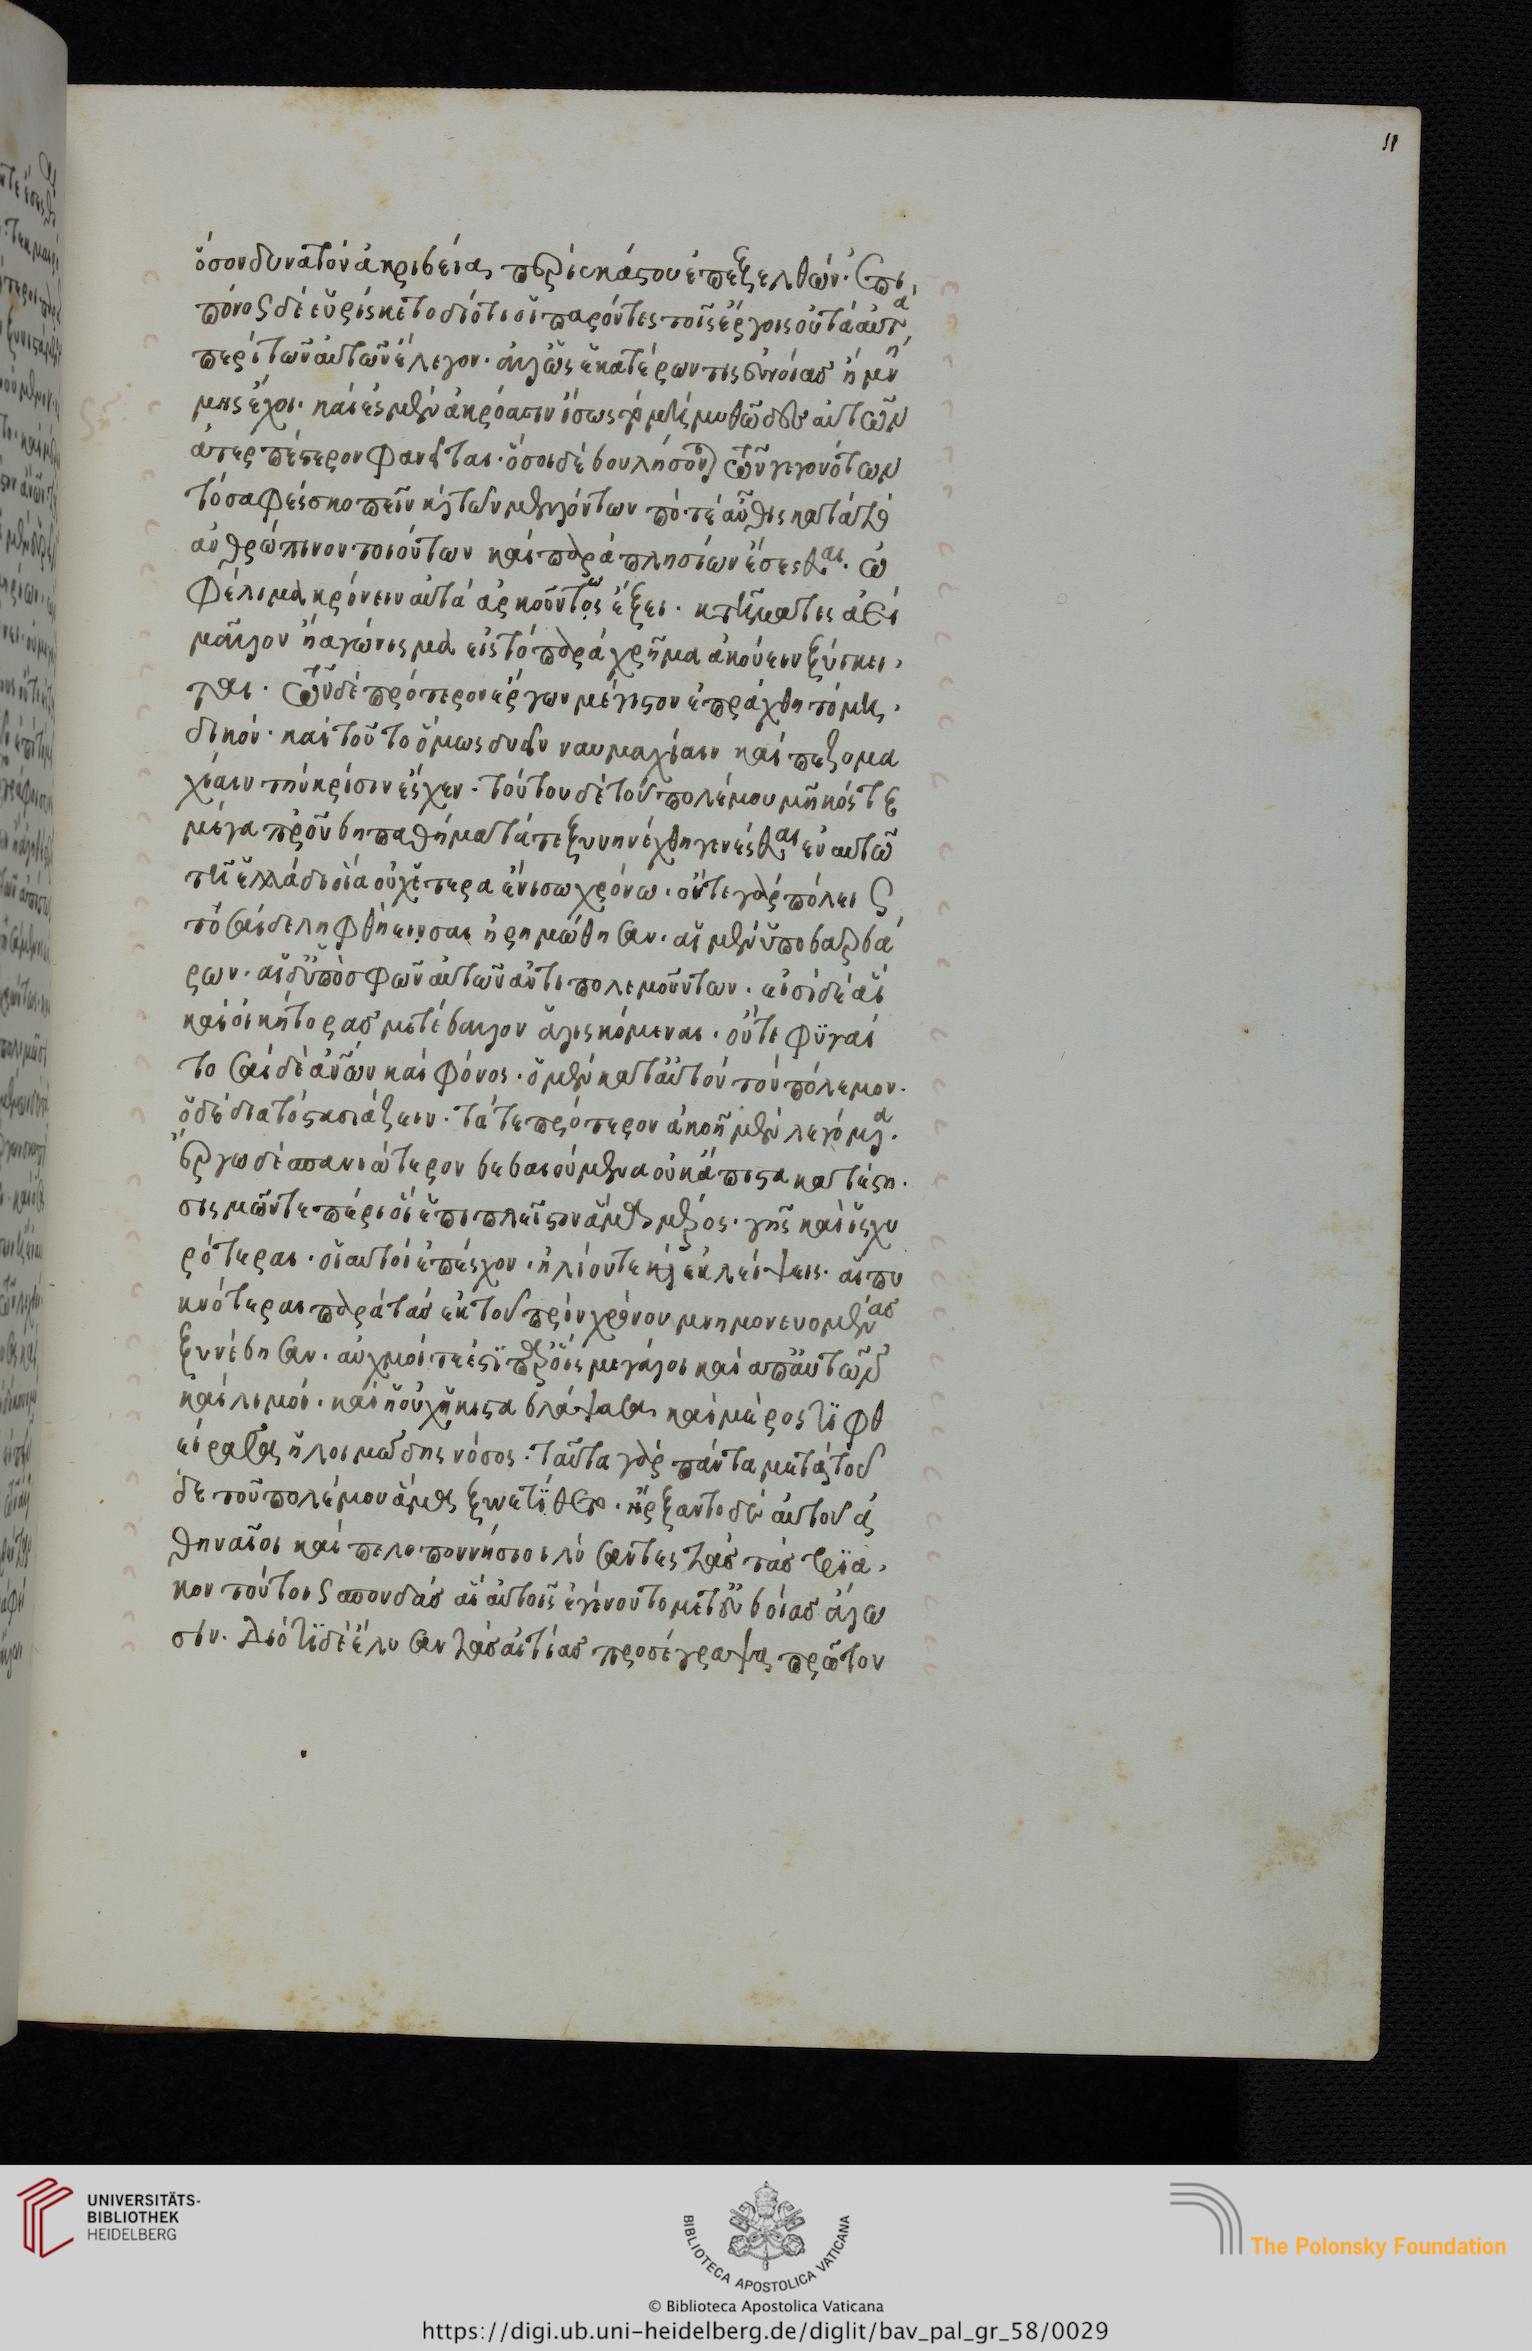 11
ὅσον δυνατὸν ἀκριβείᾳ περὶ ἑκάστου ἐπεξελθών. ἐπι
πόνως δὲ εὑρίσκετο διότι οἱ παρόντες τοῖς ἔργοις οὐ ταὐτὰ
περὶ τῶν αὐτῶν ἔλεγον. ἀλλ' ὡς ἑκατέρων τις εὐνοίας ἢ μνή
μης ἔχοι. καὶ ἐς μὲν ἀκρόασιν ἴσως τὸ μὴ μυθῶδες αὐτῶν
ἀτερπέστερον φανεῖται. ὅσοι δὲ βουλήσονται τῶν γεγονότων
τὸ σαφὲς σκοπεῖν καὶ τῶν μελλόντων ποτὲ αὖθις κατὰ τὸ
ἀνθρώπινον τοιούτων καὶ παραπλησίων ἔσεσθαι. ὠ
φέλιμα κρίνειν αὐτὰ ἀρκούντως ἕξει. κτῆμά τε ἐς ἀεὶ
μᾶλλον ἢ ἀγώνισμα εἰς τὸ παραχρῆμα ἀκούειν ξύγκει
ται. τῶν δὲ πρότερον ἔργων μέγιστον ἐπράχθη τὸ μη
δικόν. καὶ τοῦτο ὅμως δυεῖν ναυμαχίαιν καὶ πεζομα
χίαιν τὴν κρίσιν ἔσχεν. τούτου δὲ τοῦ πολέμου μῆκός τε
μέγα προύβη παθήματά τε ξυνηνέχθη γενέσθαι ἐν αὐτῷ
τῇ ἑλλάδι οἷα οὐχ ἕτερα ἐν ἴσῳ χρόνῳ. οὔτε γὰρ πόλεις
τοσαίδε ληφθεῖσαι ἠρημώθησαν. αἱ μὲν ὑπὸ βαρβά
ρων. αἱ δ' ὑπὸ σφῶν αὐτῶν ἀντιπολεμούντων. εἰσὶ δὲ αἳ
καὶ οἰκήτορας μετέβαλλον ἁλισκόμεναι. οὔτε φυγαὶ
τοσαίδε ἀνῶν καὶ φόνος. ὁ μὲν κατ' αὐτὸν τὸν πόλεμον.
ὁ δὲ διὰ τὸ στασιάζειν. τά τε πρότερον ἀκοῇ μὲν λεγόμενα.
ἔργῳ δὲ σπανιώτερον βεβαιούμενα οὐκ ἄπιστα κατέστη.
σεισμῶν τε πέρι οἳ ἐπὶ πλεῖστον ἅμα μέρος. γῆς καὶ ἰσχυ
ρότεραι. οἱ αὐτοὶ ἐπέσχον. ἡλίου τε καὶ ἐκλείψεις. αἳ πυ
κνότεραι παρὰ τὰς ἐκ τοῦ πρὶν χρόνου μνημονευομένας
ξυνέβησαν. αὐχμοί τε ἔστι παρ' οἷς μεγάλοι καὶ ἀπ' αὐτῶν
καὶ λιμοί. καὶ ἡ οὐχ ἥκιστα βλάψασα καὶ μέρος τι φθ
είρασα ἡ λοιμώδης νόσος. ταῦτα γὰρ πάντα μετὰ τοῦ
δε τοῦ πολέμου ἅμα ξυνεπέθετο. ἤρξαντο δὲ αὐτοῦ ἀ
θηναῖοι καὶ πελοποννήσιοι λύσαντες τὰς τρια
κοντούτεις σπονδὰς αἳ αὐτοῖς ἐγένοντο μετ' εὐβοίας ἅλω
σιν. διότι δὲ ἔλυσαν τὰς αἰτίας προέγραψα πρῶτον
UNIVERSITÄTS-
BIBLIOTHEK
HEIDELBERG
BIBLIOTECA APOSTOLICA VATICANA
The Polonsky Foundation
© Biblioteca Apostolica Vaticana
https://digi.ub.uni-heidelberg.de/diglit/bav_pal_gr_58/0029